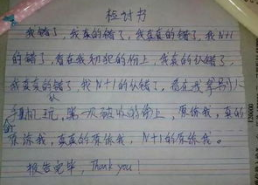 检讨书
我错了,我真的错了,我真真的错了,我N+1
的错了,看在我初犯的份上,我真的认错了,
我真真的错了,我N+1的认错了,看在我拿号小
手机玩,第一次被收的份上,原谅我,真的
原谅我,真真的原谅我,N+1的原谅我。
报告完毕,Thank you!